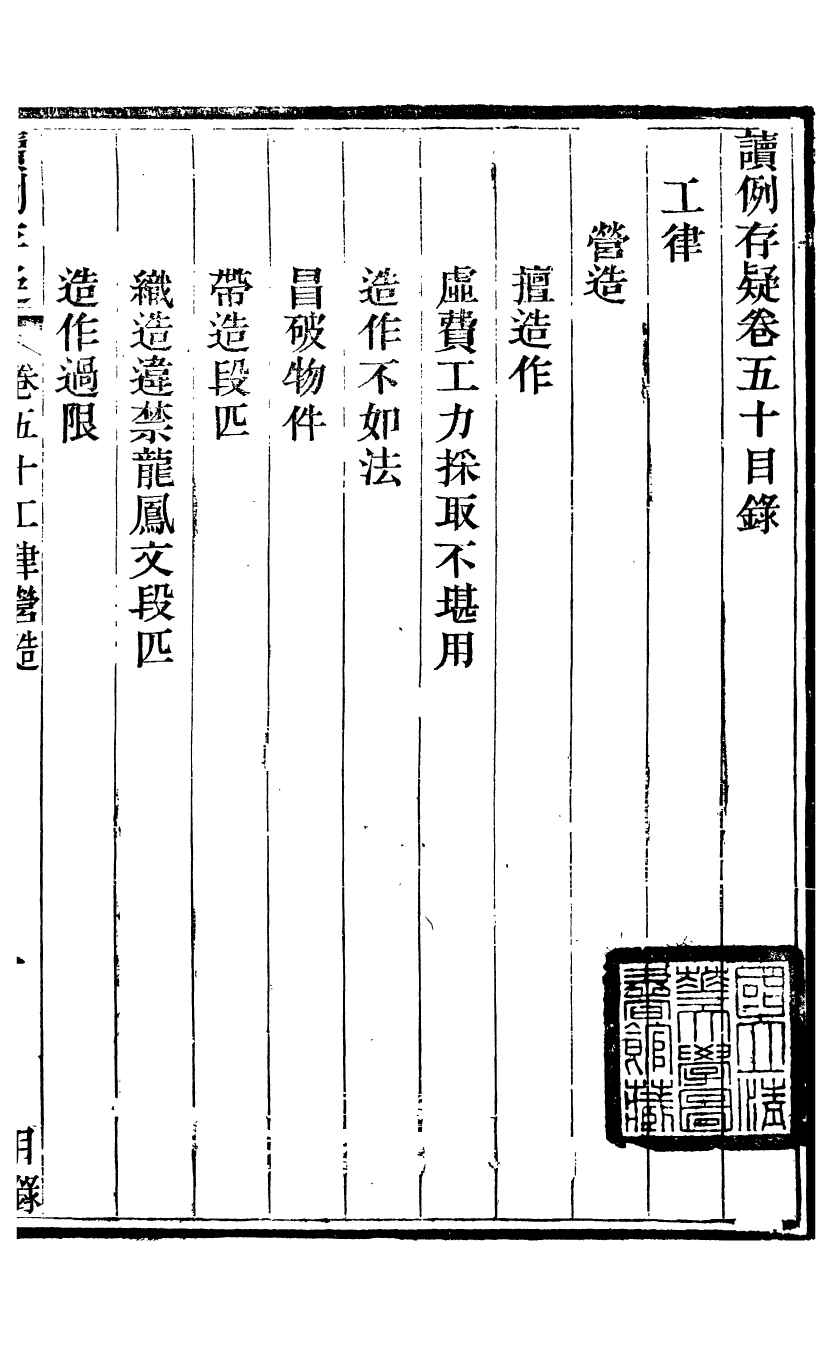 讀例存疑卷五十目錄
工律
營造
擅造作
虛費工力採取不堪用
造作不如法
冒破物件
帶造段匹
織造違禁龍鳳文段匹
造作過限
讀例存疑 卷五十工律營造 一 目錄
國立清
華大學圖
書館藏